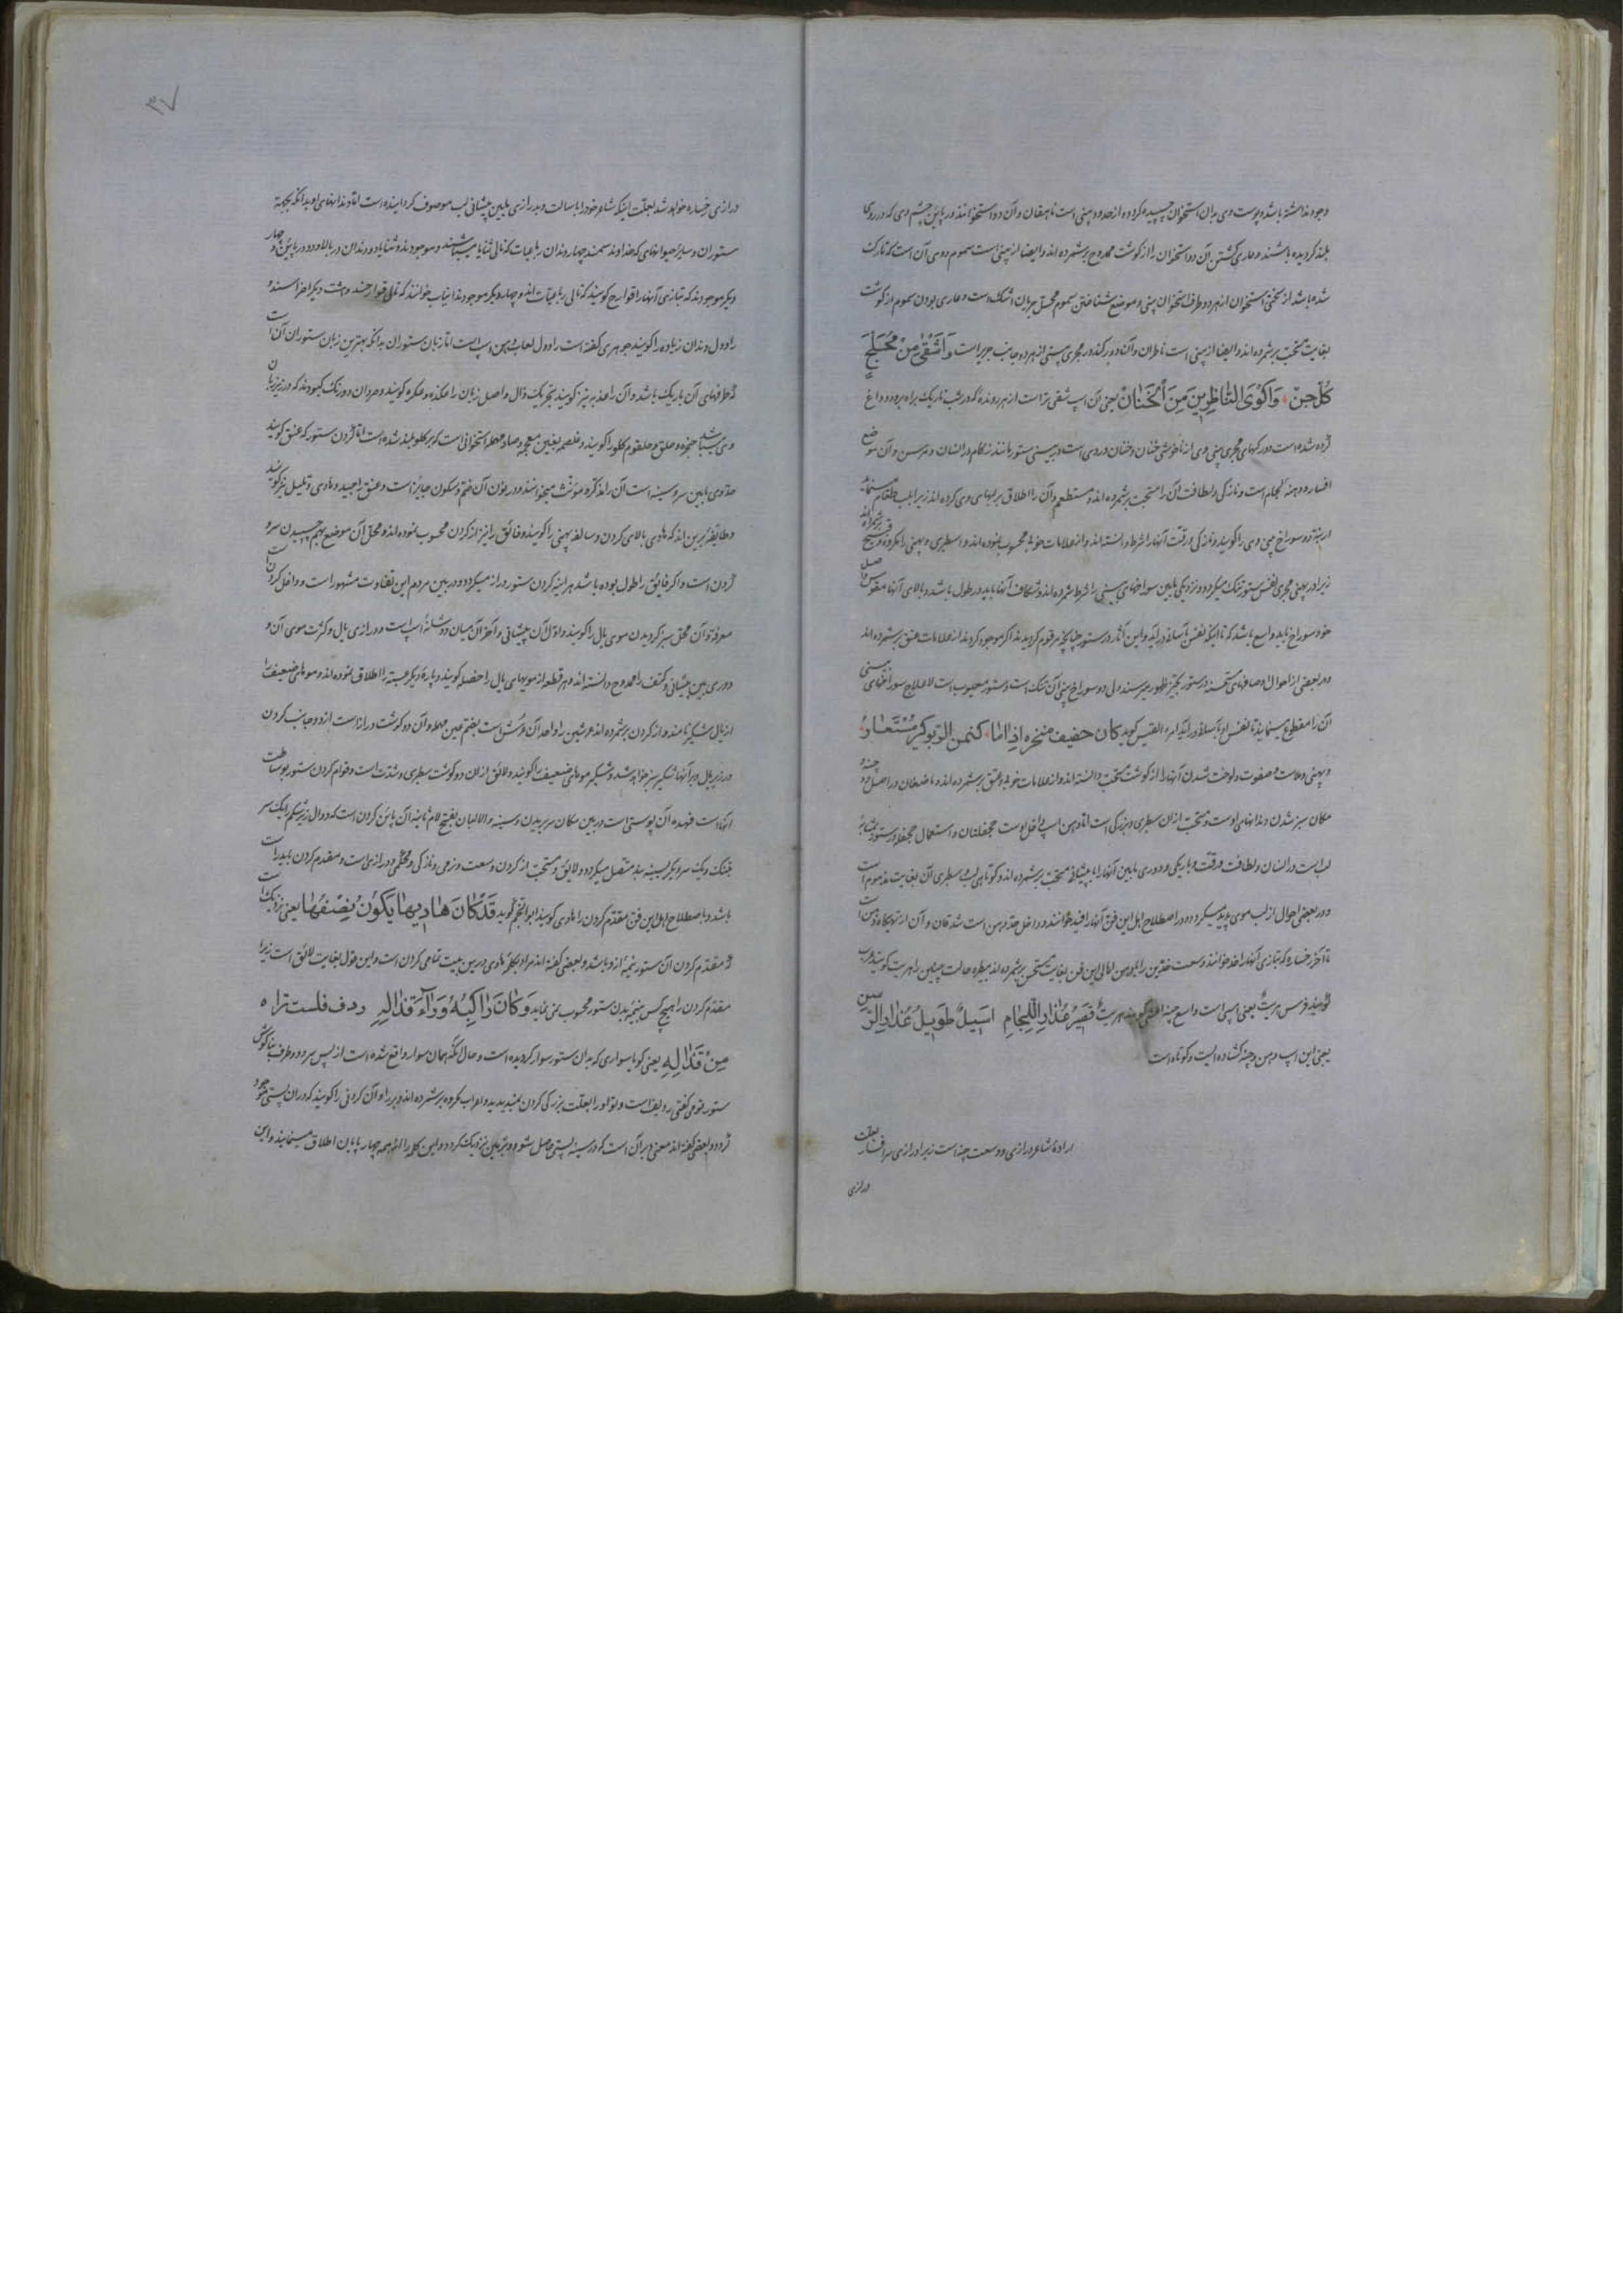 وجود نداشته باشد و پوست وی بدان استخوان چسپیده کرده از حدود بینی است ناهقان و آن دو استخوانند در پائین چشم وی که در روی
بلند گردیده باشند و عاری گشتن آن دو استخوان را از گوشت ممدوح برشمرده اند و ایضا از بینی است سموم و وی آن است که نازک
شده باشد از سختی استخوان از هر دو طرف استخوان بینی و موضع شناختن سموم محل جریان اشک است و عاری بودن سموم از گوشت
بغایت مستحب برشمرده اند و ایضا از بینی است ناظران و آن دو رگند در مجری بینی از هر دو جانب جریر است وَاَشْقٰی مِنْ مُخَلَّجِ
کُلِّ جِنّ وَاَکْوَی النّاظِرِینَ مِنَ الْخَنَانْ یعنی آن اسپ شقی تر است از هر رونده که در شب تاریک براه برود و داغ
کرده شده است دو رگهای مجری بینی وی از ناخوشی خنان و خنان دردی است در بینی ستور مانند زکام در انسان و مرسن و آن موضع
افسار و دهنه لجام است و نازکی و لطافت آن را مستحب برشمرده اند و مستطعم و آن را اطلاق بر لبهای وی کرده اند زیرا بلب طعام میستاند
ارنبه و دو سوراخ بینی وی را گویند و نازکی و رقت آنها را شرط دانسته اند و از علامات خوبی محسوب نموده اند و سطبری و پهنی را مکروه و قبیح برشمرده اند
زیرا در پهنی مجری نفس ستور تنگ میگردد و نزدیکی مابین سوراخهای بینی را شرط شمرده اند و شکاف آنها باید در طول باشد و بالای آنها مقوس و اصل
خود سوراخ باید واسع باشد که تا اینکه نفس بآسانی درآید و این آثار در ستور چنانچه مرقوم گردیدند اگر موجود گردند از علامات عتق برشمرده اند
و در بعضی از احوال و صافهای مستحسنه در ستور بحیز ظهور میرسند ولی دو سوراخ بینی آن تنگ است و ستور محبوب است لاعلاج سوراخهای بینی
آن را مقطوع مینمایند تا نفس او بآسانی درآید امرء القیس گوید کان حفیف منخره اذا ما کتمن الربو کیر مستعار
و پهنی و ملاست و صفوت و لخت شدن آنها را از گوشت مستحب دانسته اند و از علامات خوبی و عتق برشمرده اند و ماضغان در اصل دو چنه و
مکان سبز شدن دندانهای اوست و مستحب از ان سطبری و بزرگی است اما دهن اسپ داخل اوست جحفلتان و استعمال جحفله در ستور بمثابه
لب است در انسان و لطافت و رقت و باریکی و دوری مابین آنها را تا پیشانی مستحب برشمرده اند و کوتاهی لب و سطبری آن بغایت مذموم است
و در بعضی احوال از لب موی پدید میگردد و در اصطلاح اهل این فن آنها را فید خوانند و داخل حد دهن است شدقان و آن از تهیگاه دهن است
تا آخر رخساره که بتازی آنها را خد خوانند و وسعت خدین را با دهن اهالی این فن بغایت مستحسن برشمرده اند بیطره حالت چنین را هریت گویند عرب
گویند فرس هریت یعنی اسپی است واسع چنه اعشی گوید هریت قصیر عذار اللجام اسیل طویل عذار الرسن
یعنی این اسپ دهن و چنه گشاده ایست و کوتاه است
اراده شاعر درازی و وسعت چنه است زیرا درازی سرافسار بعلت
درازی
۳۷
درازی رخساره خواهد شد بعلت اینکه شاعر خود را با سالت و بدرازی مابین پیشانی لب موصوف گردانیده است اما دندانهای او بدانکه بجهة
ستوران و سایر حیوانهای که خداوند سمند چهار دندان رباعیات که تالی ثنایا میباشند و موجودند و ثنایا دو دندان در بالا و دو در پائین و چهار
دیگر موجودند که بتازی آنها را قوارح گویند که تالی رباعیات اند و چهار دیگر موجودند انیاب خوانند که تالی قوارحند و هشت دیگر اضراسند و
راوول دندان زیاده را گویند جوهری گفته است راوول لعاب دهن اسپ است اما زبان ستوران بدانکه بهترین زبان ستوران آن است
که طرفهای آن باریک باشد و آن را عذبه نیز گویند بتحریک ذال و اصل زبان را عکده و عکره گویند و صردان دو رنگ کبودند که در زیر زبان
وی میباشند حنجره و حلق و حلقوم گلو را گویند و غلصم بغین معجمه و صاد مهمله استخوانی است که بر گلو بلند شده است اما گردن ستور که عنق گویند
حد وی مابین سر و سینه است آن را مذکر و مؤنث میخوانند و در نون آن ضم و سکون جایز است و عنق را جید و هادی و تلیل نیز گویند
و طایفهٔ برین اند که هادی بالای گردن و سالفه پهنی را گویند و فائق را نیز از گردن محسوب نموده اند و محل آن موضع بهم چسپیدن سر و
گردن است و اگر فائق را طول بوده باشد هر اینه گردن ستور دراز میگردد و در بین مردم این تفاوت مشهور است و داخل گردن است
معرفه و آن محل سبز گردیدن موی یال را گویند و اول آن پیشانی و آخر آن میان دو شانهٔ اسپ است و درازی یال و کثرت موی آن و
دوری بین پیشانی و کتف را ممدوح دانسته اند و هر قطعه از مویهای یال را خصله گویند و پارهٔ دیگر عسبته را اطلاق نموده اند و موهای ضعیف را
از یال شکیر نامند و از گردن برشمرده اند عرشین را واحد آن عرش است بضم عین مهمله و آن دو گوشت دراز است از دو جانب گردن
در زیر یال و بر آنها شکیر سبز خواهد شد و شکیر موهای ضعیف را گویند و لائق از ان دو گوشت سطبری و شدت است و قوام گردن ستور بوساطت
آنهاست فهده آن پوستی است در بین مکان سر بریدن و سینه و الالبان بفتح لام ثانیه آن پائین گردن است که دوال زیر شکم را یک سر
بتنگ و یک سر دیگر بسینه بند متصل میگردد و لائق و مستحب از گردن وسعت و نرمی و نازکی و محکمی و درازی است و مقدم گردن باید راست
باشد و باصطلاح اهل این فن مقدم گردن را هادی گویند ابو النجم گوید قَدْ کَانَ هَادِیهَا یَکُونُ نِصْفَهَا یعنی نزدیک است
که مقدم گردن آن ستور نیمه از او باشد و بعضی گفته اند مراد بکلمهٔ هادی درین بیت تمامی گردن است و این قول بغایت لائق است زیرا
مقدم گردن را هیچ کس نیمهٔ بدن ستور محسوب نمی نماید وَکَانَ رَاکِبُهُ وَرَآءَ قَذَالِهِ ردف فلست تراه
مِنْ قَذَالِهِ یعنی گویا سواری که بدان ستور سوار گردیده است و حال آنکه همان سوار واقع شده است از پس سر و دو طرف بناگوش
ستور تو می گفتی ردیف است و تو او را بعلت بزرگی گردن نمیدیدید و اعراب مکروه برشمرده اند دبر را و آن گردنی را گویند که در ان پستی موجود
گردد و بعضی گفته اند معنی دبر آن است که در سینه پستی حاصل شود و بزمین نزدیک گردد و این کلمه را اکثر همه چهار پایان اطلاق مینمایند و این